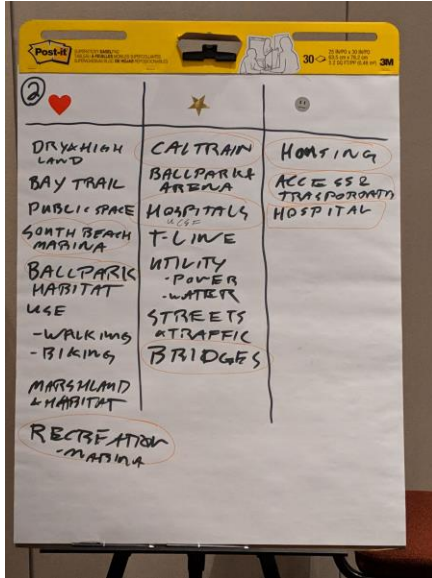 Post-it
30
25 IN/PO x 30 IN/PO
3M
2
DRY & HIGH
LAND
BAY TRAIL
PUBLIC SPACE
SOUTH BEACH
MARINA
BALLPARK
HABITAT
USE
-WALKING
-BIKING
MARSHLAND
& HABITAT
RECREATION
-MARINA
CALTRAIN
BALLPARK &
ARENA
HOSPITALS
UCSF
T-LINE
UTILITY
-POWER
-WATER
STREETS
& TRAFFIC
BRIDGES
HOUSING
ACCESS &
TRASPORDATN
HOSPITAL